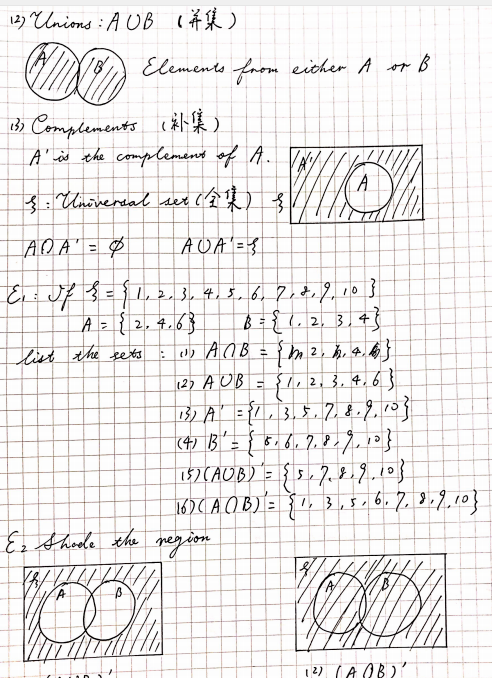 (2) Unions : A∪B (并集)
A B Elements from either A or B
(3) Complements (补集)
A' is the complement of A. A'
A
ξ : Universal set (全集) ξ
A∩A' = ∅ A∪A' = ξ
E1 : If ξ = { 1, 2, 3, 4, 5, 6, 7, 8, 9, 10 }
A = { 2, 4, 6 } B = { 1, 2, 3, 4 }
list the sets : (1) A∩B = { 2, 4, }
(2) A∪B = { 1, 2, 3, 4, 6 }
(3) A' = { 1, 3, 5, 7, 8, 9, 10 }
(4) B' = { 5, 6, 7, 8, 9, 10 }
(5) (A∪B)' = { 5, 7, 8, 9, 10 }
(6) (A∩B)' = { 1, 3, 5, 6, 7, 8, 9, 10 }
E2 Shade the region
ξ A B ξ A B
(2) (A∩B)'